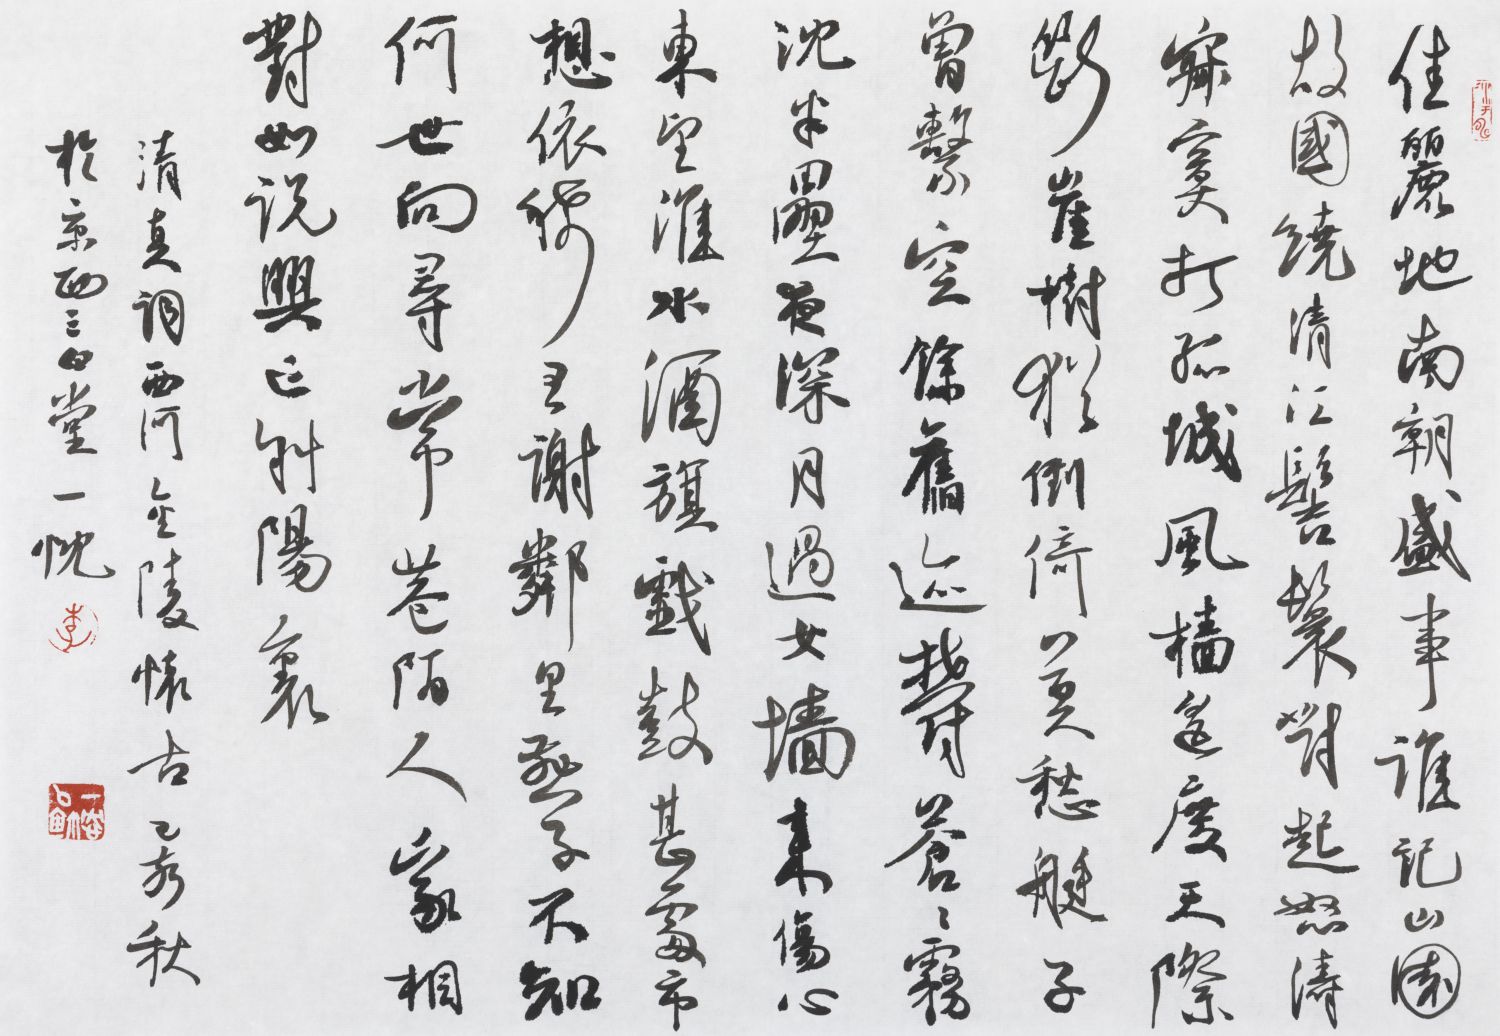 佳麗地南朝盛事誰記山圍
故國繞清江髻鬟對起怒濤
寂寞打孤城風檣遙度天際
斷崖樹猶倒倚莫愁艇子
曾繫空餘舊迹鬱蒼〻霧
沈半壘夜深月過女墻來傷心
東望淮水酒旗戲鼓甚處市
想依稀王謝鄰里燕子不知
何世向尋常巷陌人家相
對如説興亡斜陽裏
清真詞西河金陵懷古 己亥秋
於京西三白堂一忱
李